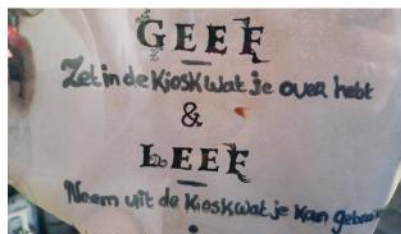 GEEF
Zet in de Kiosk wat je over hebt
&
LEEF
Neem uit de Kiosk wat je kan